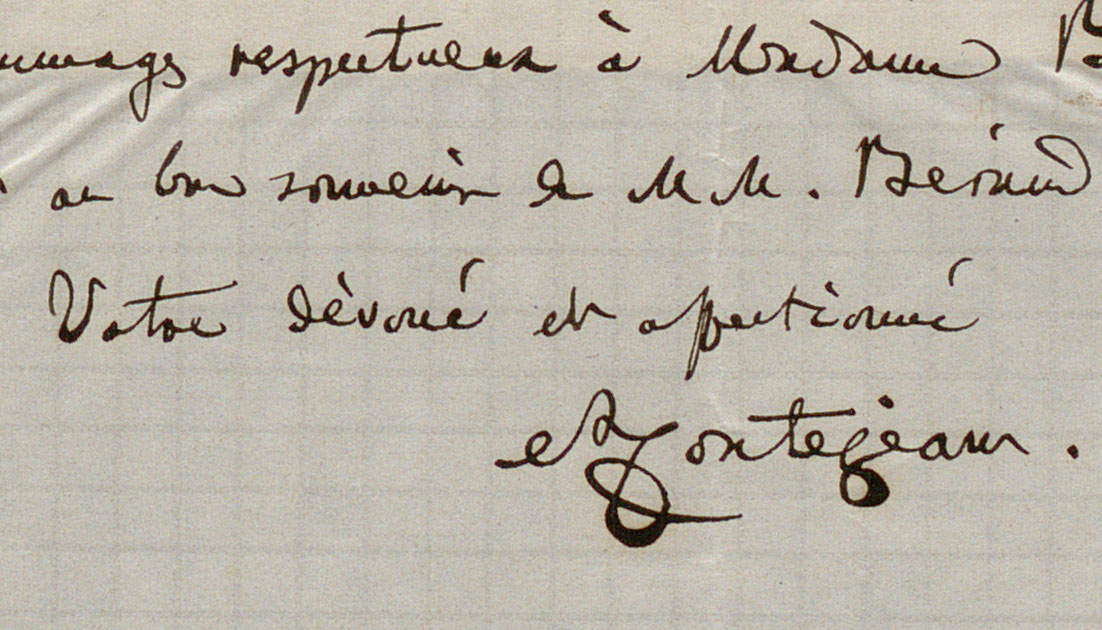 respectueux à Madame B
au bon souvenir de MM. Bérard
Votre dévoué et affectionné
Contejean.